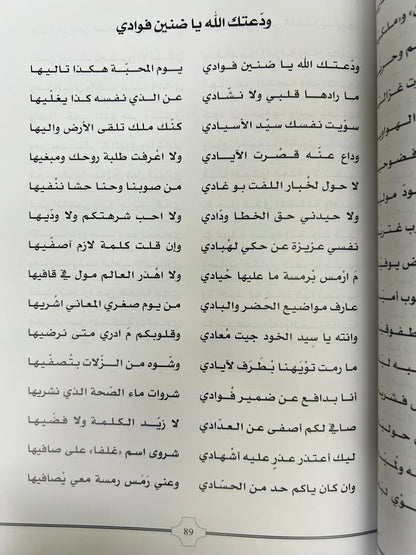 ودّعتك الله يا ضنين فوادي
ودّعتك الله يا ضنين فوادي يوم المحبّة هكذا تاليها
ما رادها قلبي ولا نشّادي عن الذي نفسه كذا يغلّيها
سوّيت نفسك سيّد الأسيادي كنّك ملك تلقى الأرض واليها
وداع عنه قصّرت الآيادي ولا اعْرفت طلبة روحك ومبغيها
لا حول لخْبار اللفت بو غادي من صوبنا وحنا حشا ننْفيها
ولا حيدني حق الخطا ودّادي ولا احب شرهتكم ولا ودّيها
نفسي عزيزة عن حكي لهْبادي وإن قلت كلمة لازم آصفّيها
مَ ارْمس برْمسة ما عليها حْيادي ولا اهْذر العالم مول في قافيها
عارف مواضيع الحَضر والبادي من يوم صغري المعاني اشْريها
وانته يا سِيد الخود جيت مْعادي وقلوبكم مَ ادري متى نرضيها
ما رمت تويْهنا بْطَرف لآيادي وشْوه من الزلّات بتْصفّيها
أنا بدافع عن ضمير فْوادي شروات ماء الصّحة الذي نشريها
صافي لكم أصفى عن العدّادي لا زيّد الكلمة ولا فضّيها
ليك أعتذر عذرٍ عليه أشْهادي شروى اسم «غلفا» على صافيها
وان كان ياكم حد من الحسّادي وعني رَمَس رمسة معي يْصافيها
89